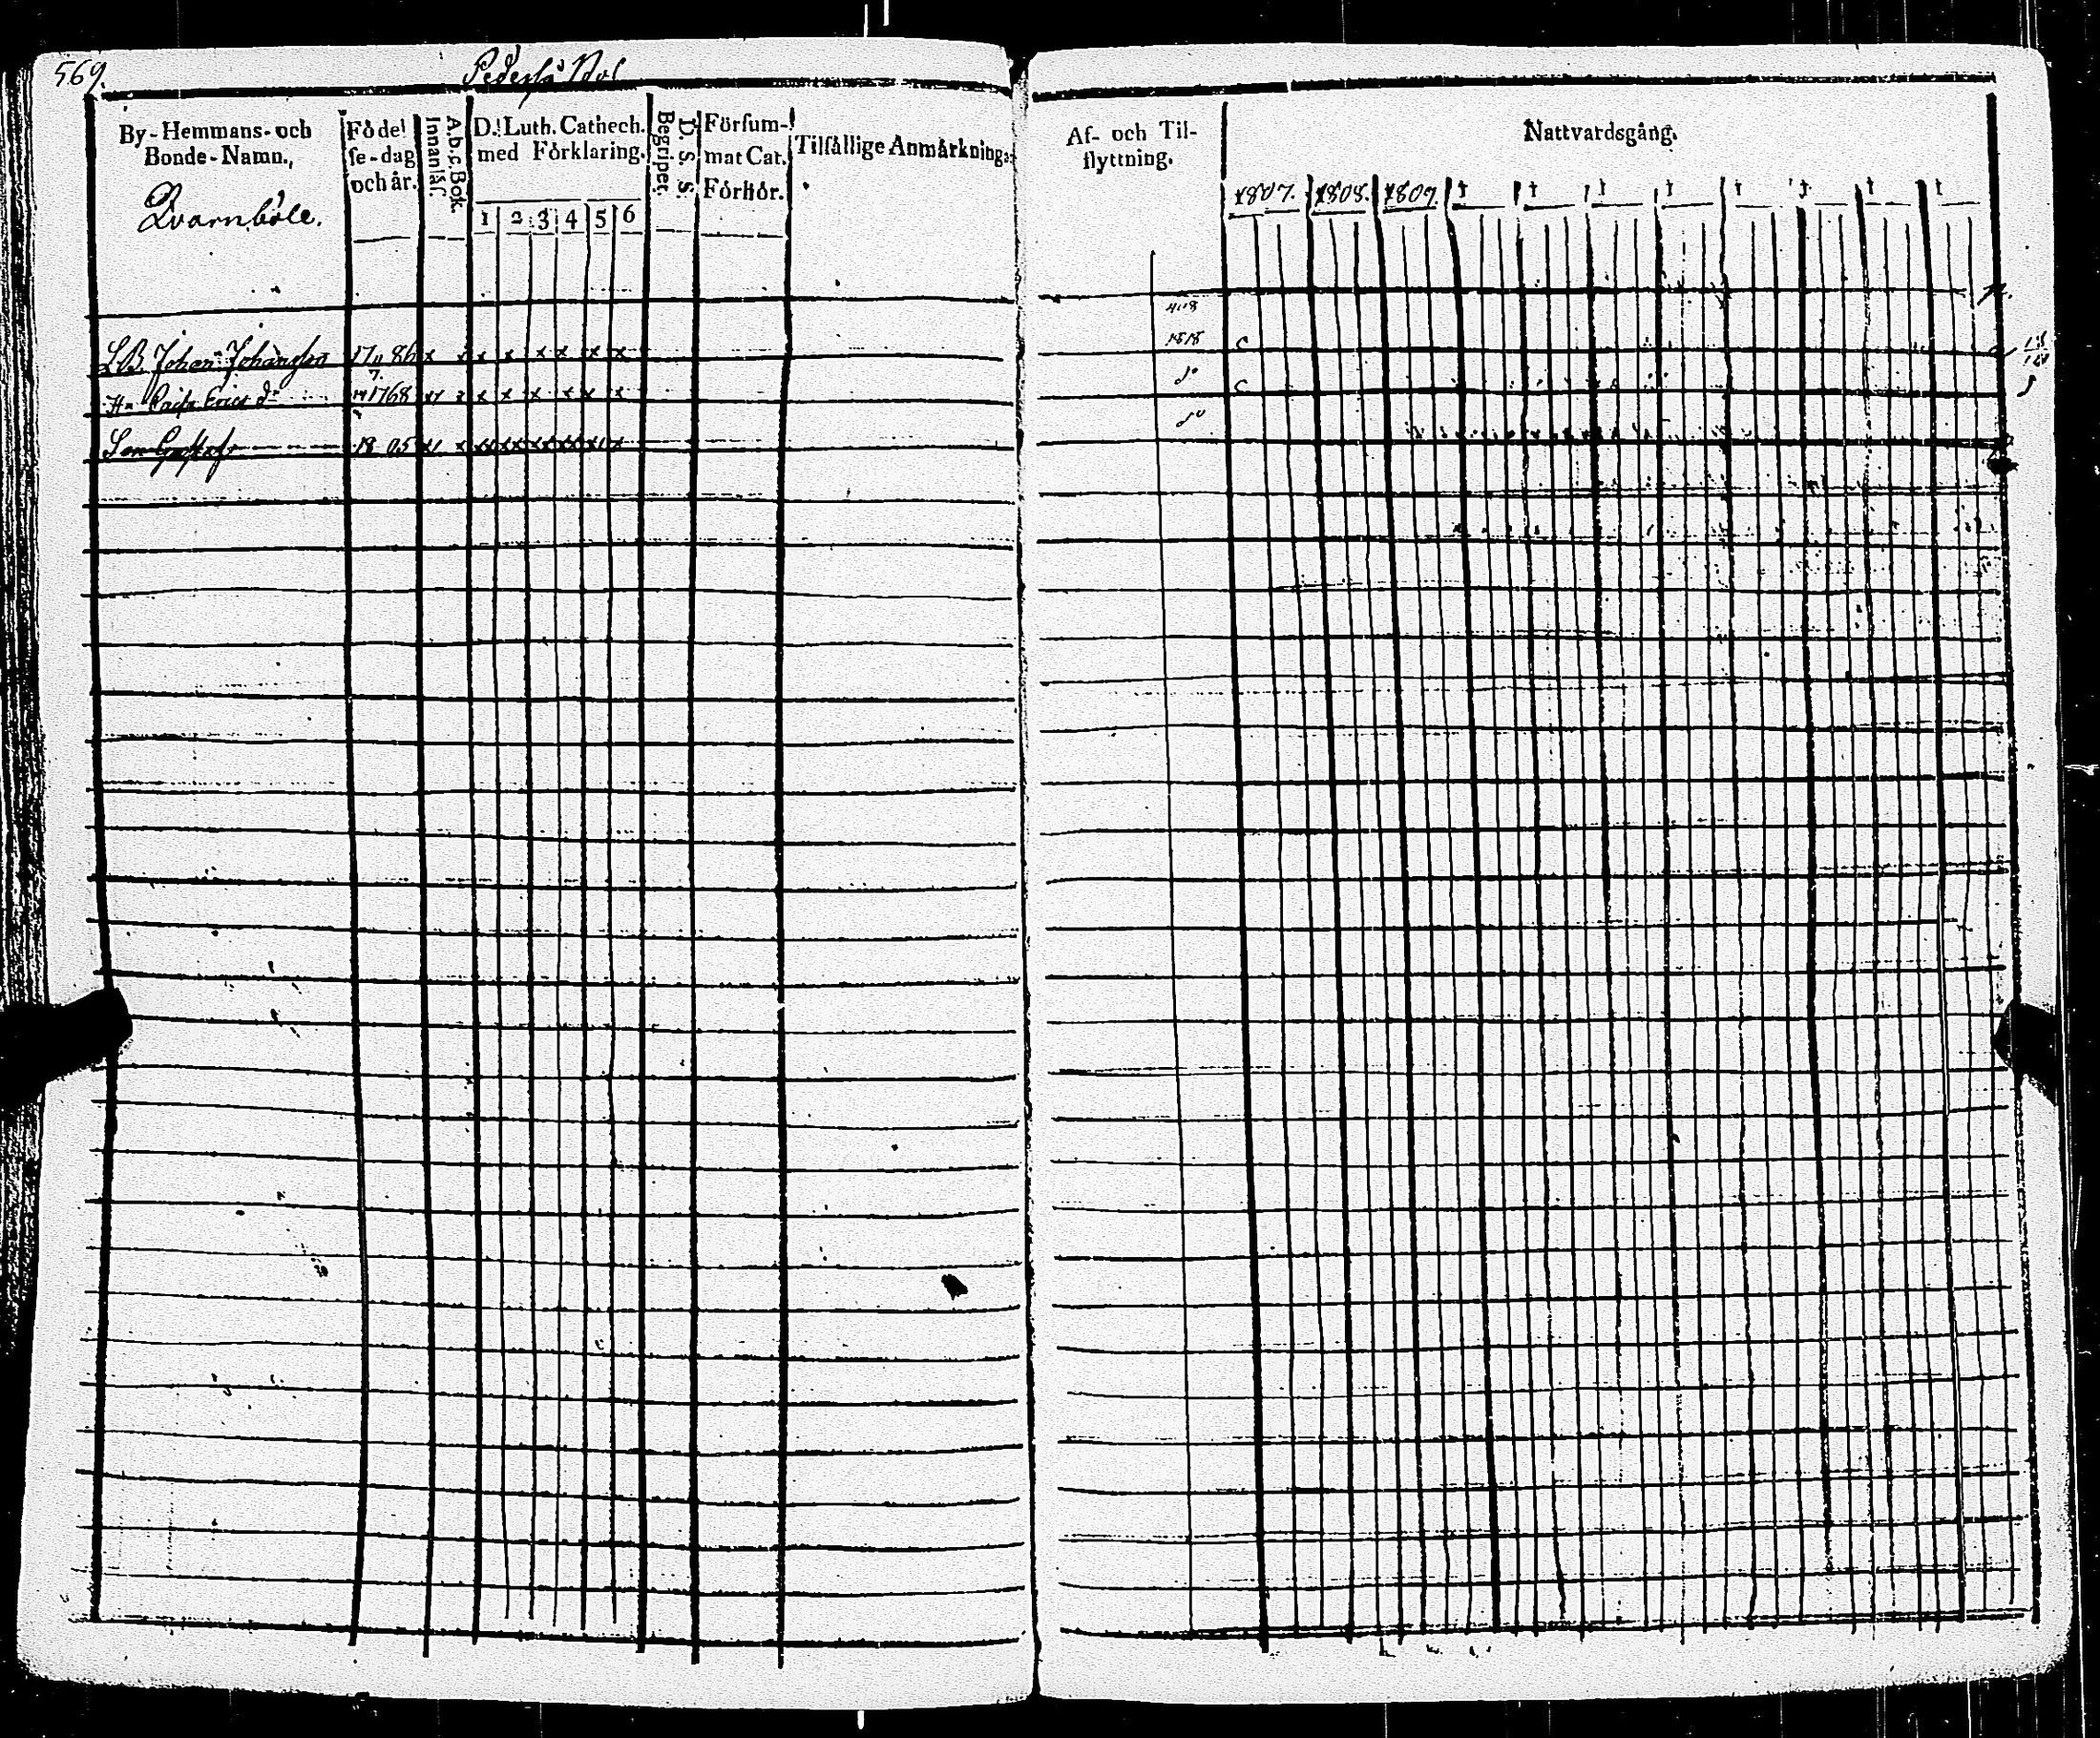 569.
By-Hemmans- och Bonde-Namn.
Födelse-dag och år.
A.b.c. Bok. Innanläſ.
D. Luth. Cathech. med Förklaring.
1 2 3 4 5 6
D. S. S. Begripet.
Förſum- mat Cat. Förhör.
Tilfällige Anmärkning:
Qvarnböle.
LB. Johan Johansson 17 86 x x x x x x x x
H. Ericsdr 1768 x x x x x x x
Son Gustaf 18 05 x x x x x x x x
Af- och Til- flyttning.
Nattvardsgång.
1807. 1808. 1809.
1818 c
do c
do